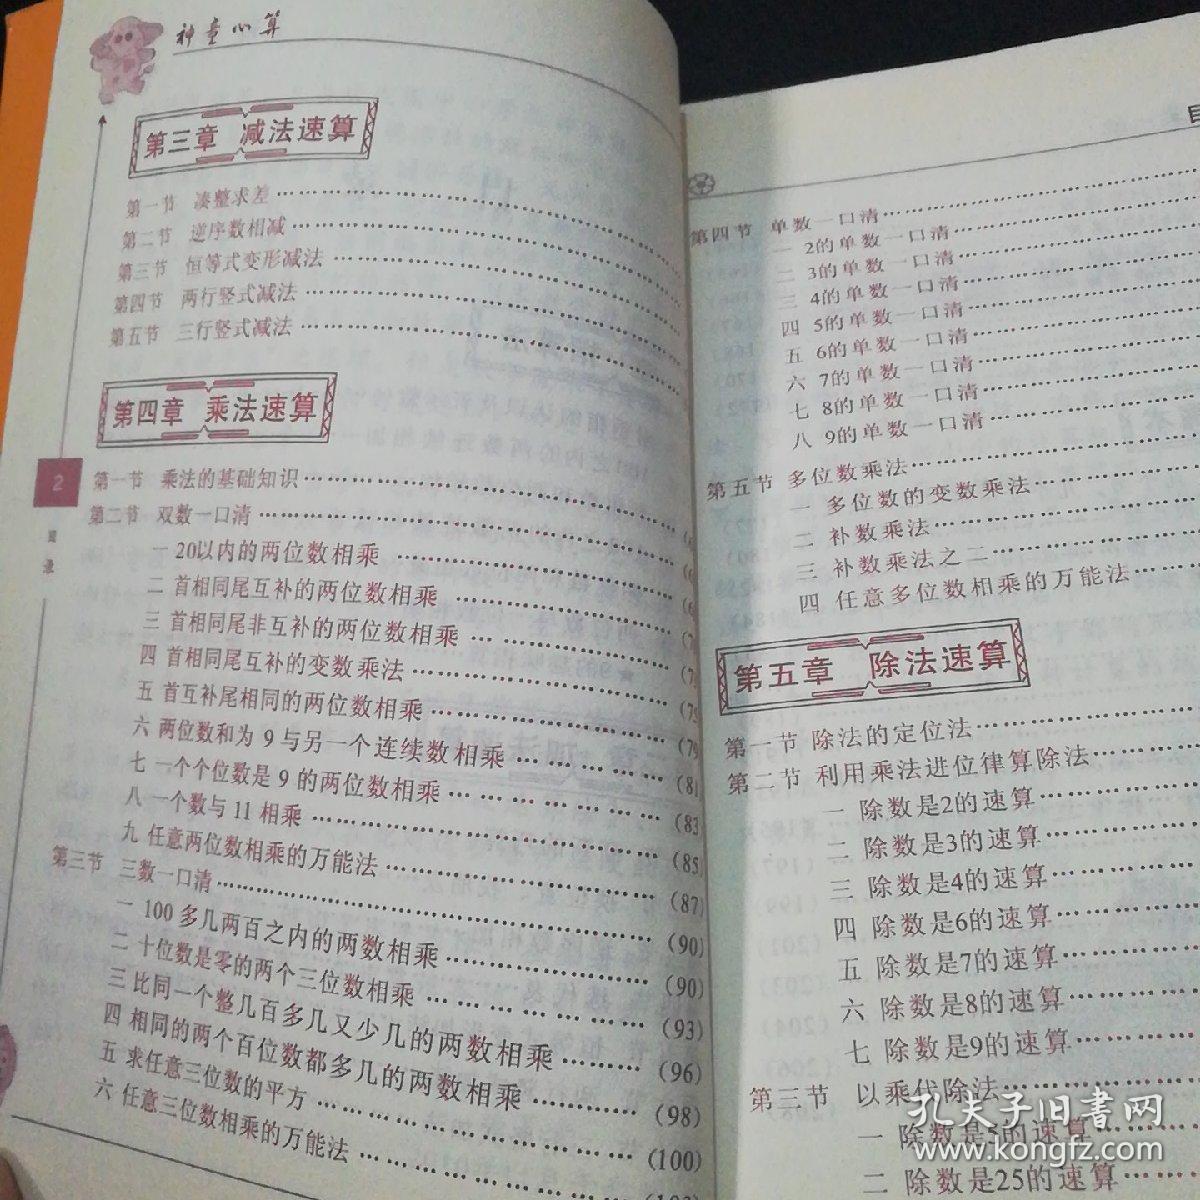 神童心算
第三章 减法速算
第一节 凑整求差
第二节 逆序数相减
第三节 恒等式变形减法
第四节 两行竖式减法
第五节 三行竖式减法
第四章 乘法速算
2
目录
第一节 乘法的基础知识
第二节 双数一口清
一 20以内的两位数相乘
二 首相同尾互补的两位数相乘
三 首相同尾非互补的两位数相乘
四 首相同尾互补的变数乘法
五 首互补尾相同的两位数相乘
六 两位数和为9与另一个连续数相乘
七 一个个位数是9的两位数相乘
八 一个数与11相乘
九 任意两位数相乘的万能法
第三节 三数一口清
一 100多几两百之内的两数相乘
二 十位数是零的两个三位数相乘
三 比同一个整几百多几又少几的两数相乘
四 相同的两个百位数都多几的两数相乘
五 求任意三位数的平方
六 任意三位数相乘的万能法
(79)
(81)
(83)
(85)
(87)
(90)
(90)
(93)
(96)
(98)
(100)
第四节 单数一口清
一 2的单数一口清
二 3的单数一口清
三 4的单数一口清
四 5的单数一口清
五 6的单数一口清
六 7的单数一口清
七 8的单数一口清
八 9的单数一口清
第五节 多位数乘法
一 多位数的变数乘法
二 补数乘法
三 补数乘法之二
四 任意多位数相乘的万能法
第五章 除法速算
第一节 除法的定位法
第二节 利用乘法进位律算除法
一 除数是2的速算
二 除数是3的速算
三 除数是4的速算
四 除数是6的速算
五 除数是7的速算
六 除数是8的速算
七 除数是9的速算
第三节 以乘代除法
一 除数是5的速算
二 除数是25的速算
孔夫子旧书网
www.kongfz.com